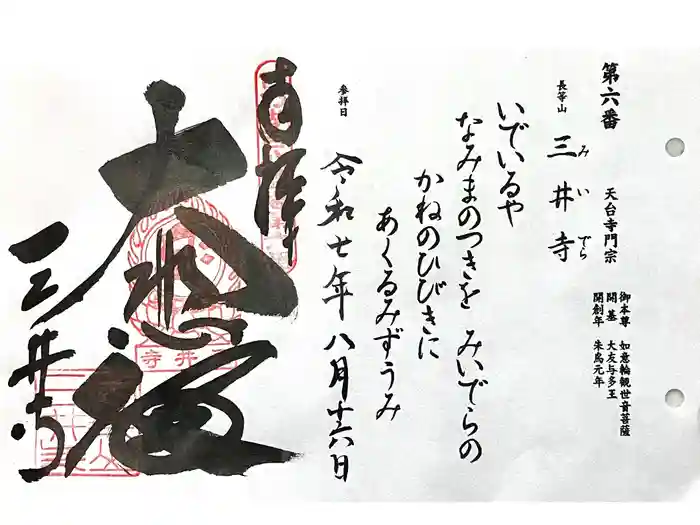 第六番
天台寺門宗
御本尊 如意輪観世音菩薩
開基 大友与多王
開創年 朱鳥元年
長等山
三井寺
みいでら
いでいるや
なみまのつきを みいでらの
かねのひびきに
あくるみずうみ
参拝日
令和七年八月十六日
奉拝
大悲
三井寺
三井寺